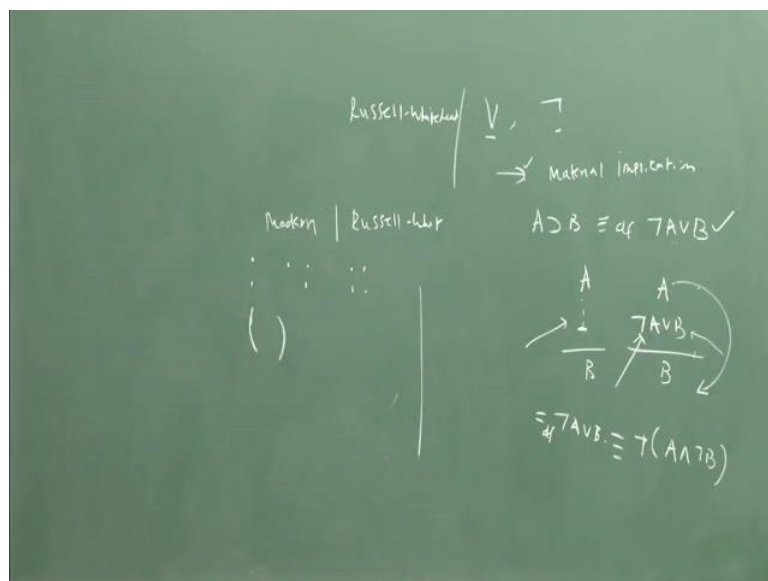 Russell-Whitehead | ∨, ¬
→ ✓ Material Implication
Modern | Russell-
A ⊃ B ≡ df ¬A∨B ✓
: : : ::
( )
A A
¬A∨B
B B
≡ df ¬A∨B. ≡ ¬(A∧¬B)